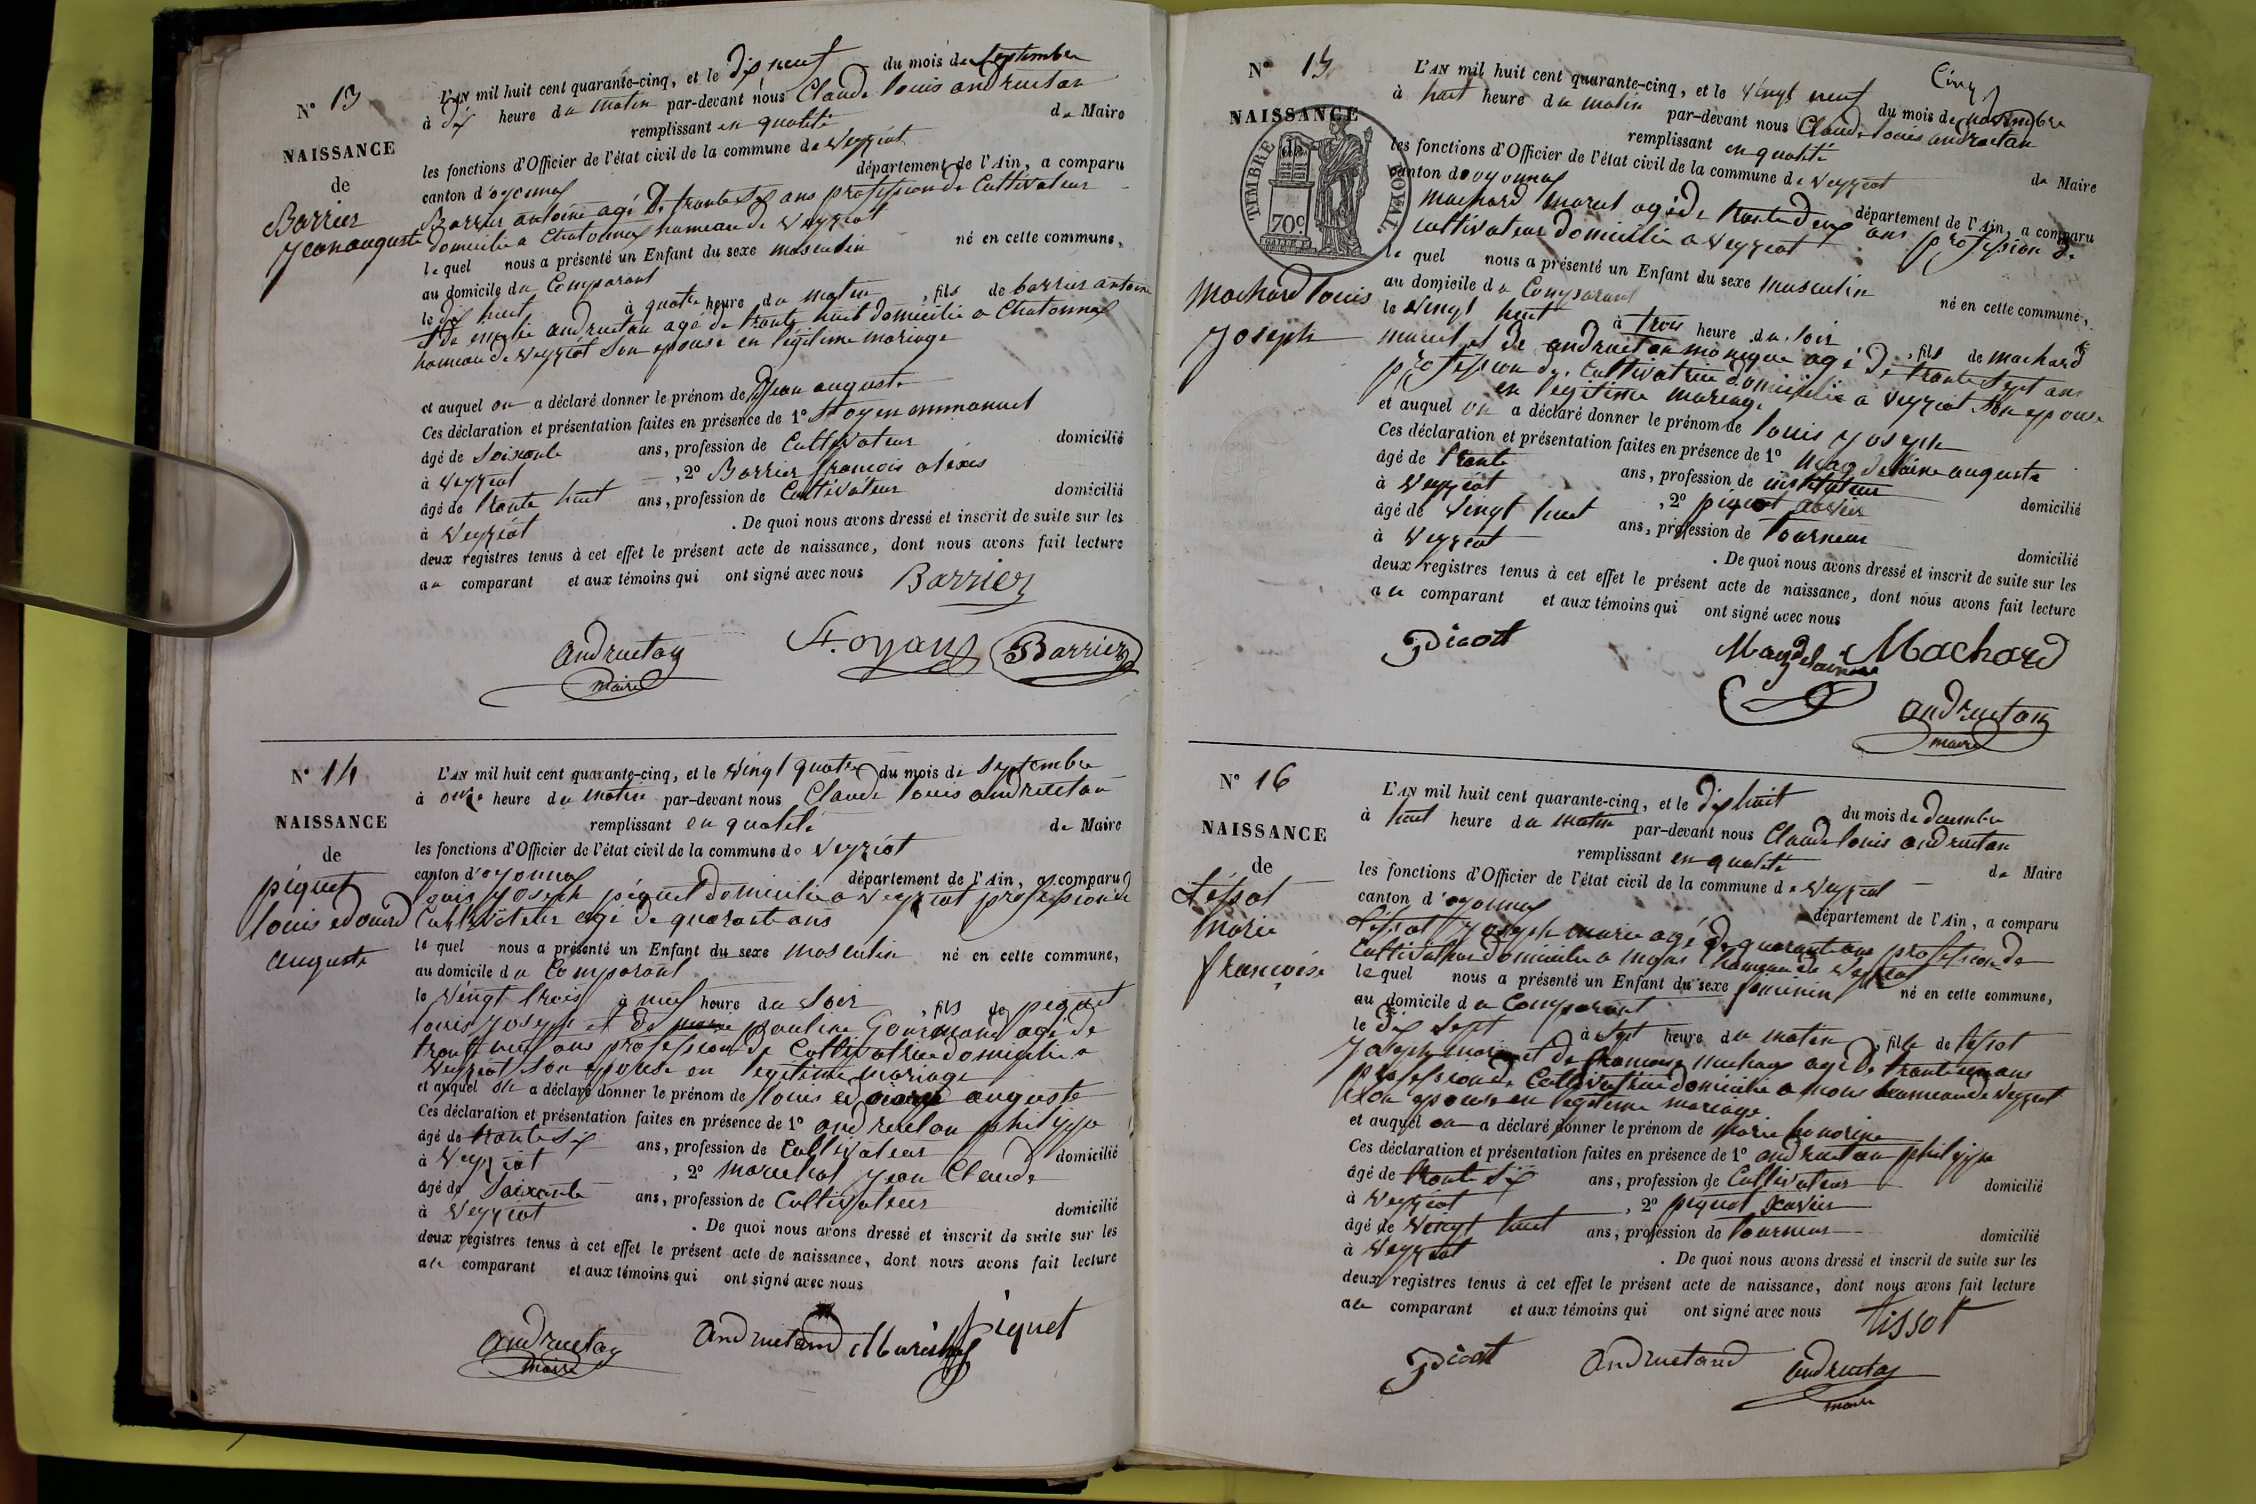 N° 13
NAISSANCE
de
Barrier
Jean auguste
L'AN mil huit cent quarante-cinq, et le dix neuf du mois de septembre
à dix heure du matin par-devant nous Claude louis andruetan
remplissant en qualité de Maire
les fonctions d'Officier de l'état civil de la commune de Veyziat
canton d'oyonnax département de l'Ain, a comparu
Barrier antoine agé De trante six ans profession de Cultivateur
domicilié a Chatonnax hameau de Veyziat
le quel nous a présenté un Enfant du sexe masculin né en cette commune,
au domicile du Comparant
le dix huit à quatre heure du matin , fils de barrier antoine
et de emelie andruetan agé de trante huit domicilié a Chatonnax
hameau de veyziat Son epouse en légitime mariage
et auquel on a déclaré donner le prénom de Jean auguste
Ces déclaration et présentation faites en présence de 1° Stoyen emmanuel
âgé de Soixante ans, profession de Cultivateur domicilié
à Veyziat , 2° Barrier francois alexis
âgé de trante huit ans, profession de Cultivateur domicilié
à Veyziat . De quoi nous avons dressé et inscrit de suite sur les
deux registres tenus à cet effet le présent acte de naissance, dont nous avons fait lecture
au comparant et aux témoins qui ont signé avec nous Barrier
andruetan St. oyant Barrier
maire
N° 14
NAISSANCE
de
piquet
louis edouard
auguste
L'AN mil huit cent quarante-cinq, et le vingt quatre du mois de Septembre
à onze heure du matin par-devant nous Claude louis andruetan
remplissant en qualité de Maire
les fonctions d'Officier de l'état civil de la commune de Veyziat
canton d'oyonnax département de l'Ain, a comparu
louis joseph piquet domicilié a Veyziat profession de
Cultivateur agé de quarante ans
le quel nous a présenté un Enfant du sexe masculin né en cette commune,
au domicile du Comparant
le vingt trois à neuf heure du Soir , fils de piquet
louis joseph et de pauline Gourmand agé de
trante neuf ans profession de Cultivatrice domicilié a
Veyziat Son epouse en legitime mariage
et auquel on a déclaré donner le prénom de louis auguste
Ces déclaration et présentation faites en présence de 1° andruetan philippe
âgé de trante six ans, profession de Cultivateur domicilié
à Veyziat , 2° marechal jean Claude
âgé de Soixante ans, profession de Cultivateur domicilié
à Veyziat . De quoi nous avons dressé et inscrit de suite sur les
deux registres tenus à cet effet le présent acte de naissance, dont nous avons fait lecture
au comparant et aux témoins qui ont signé avec nous
andruetan andruetand Maréchal piquet
maire
Cinq
N° 15
NAISSANCE
TIMBRE ROYAL
70c
machard louis
joseph
L'AN mil huit cent quarante-cinq, et le vingt neuf du mois de novembre
à huit heure du matin par-devant nous Claude louis andruetan
remplissant en qualité de Maire
les fonctions d'Officier de l'état civil de la commune de Veyziat
canton d'oyonnax département de l'Ain, a comparu
machard marcel agé de trante deux ans profession de
cultivateur domicilié a Veyziat
le quel nous a présenté un Enfant du sexe masculin né en cette commune,
au domicile du Comparant
le vingt huit à trois heure du soir , fils de machard
marcel et de andruetan monique agé de trante sept ans
profession de Cultivatrice domicilié a Veyziat Son epouse
en legitime mariage
et auquel on a déclaré donner le prénom de louis joseph
Ces déclaration et présentation faites en présence de 1° auguste
âgé de trante ans, profession de instituteur domicilié
à Veyziat , 2° piquet xavier
âgé de vingt huit ans, profession de tourneur domicilié
à Veyziat . De quoi nous avons dressé et inscrit de suite sur les
deux registres tenus à cet effet le présent acte de naissance, dont nous avons fait lecture
au comparant et aux témoins qui ont signé avec nous
Machard
andruetan
maire
N° 16
NAISSANCE
de
Tissot
marie
françoise
L'AN mil huit cent quarante-cinq, et le dix huit du mois de decembre
à huit heure du matin par-devant nous Claude louis andruetan
remplissant en qualité de Maire
les fonctions d'Officier de l'état civil de la commune de Veyziat
canton d'oyonnax département de l'Ain, a comparu
Tissot joseph marie agé de quarante ans profession de
Cultivateur domicilié a hameau de Veyziat
le quel nous a présenté un Enfant du sexe feminin né en cette commune,
au domicile du Comparant
le dix sept à sept heure du matin , fille de tissot
joseph marie et de francoise agé de trante ans
profession de Cultivatrice domicilié a hameau de Veyziat
Son epouse en legitime mariage
et auquel on a déclaré donner le prénom de marie honorine
Ces déclaration et présentation faites en présence de 1° andruetan philippe
âgé de trante six ans, profession de Cultivateur domicilié
à Veyziat , 2° piquet xavier
âgé de vingt huit ans, profession de tourneur domicilié
à Veyziat . De quoi nous avons dressé et inscrit de suite sur les
deux registres tenus à cet effet le présent acte de naissance, dont nous avons fait lecture
au comparant et aux témoins qui ont signé avec nous tissot
andruetand andruetan
maire